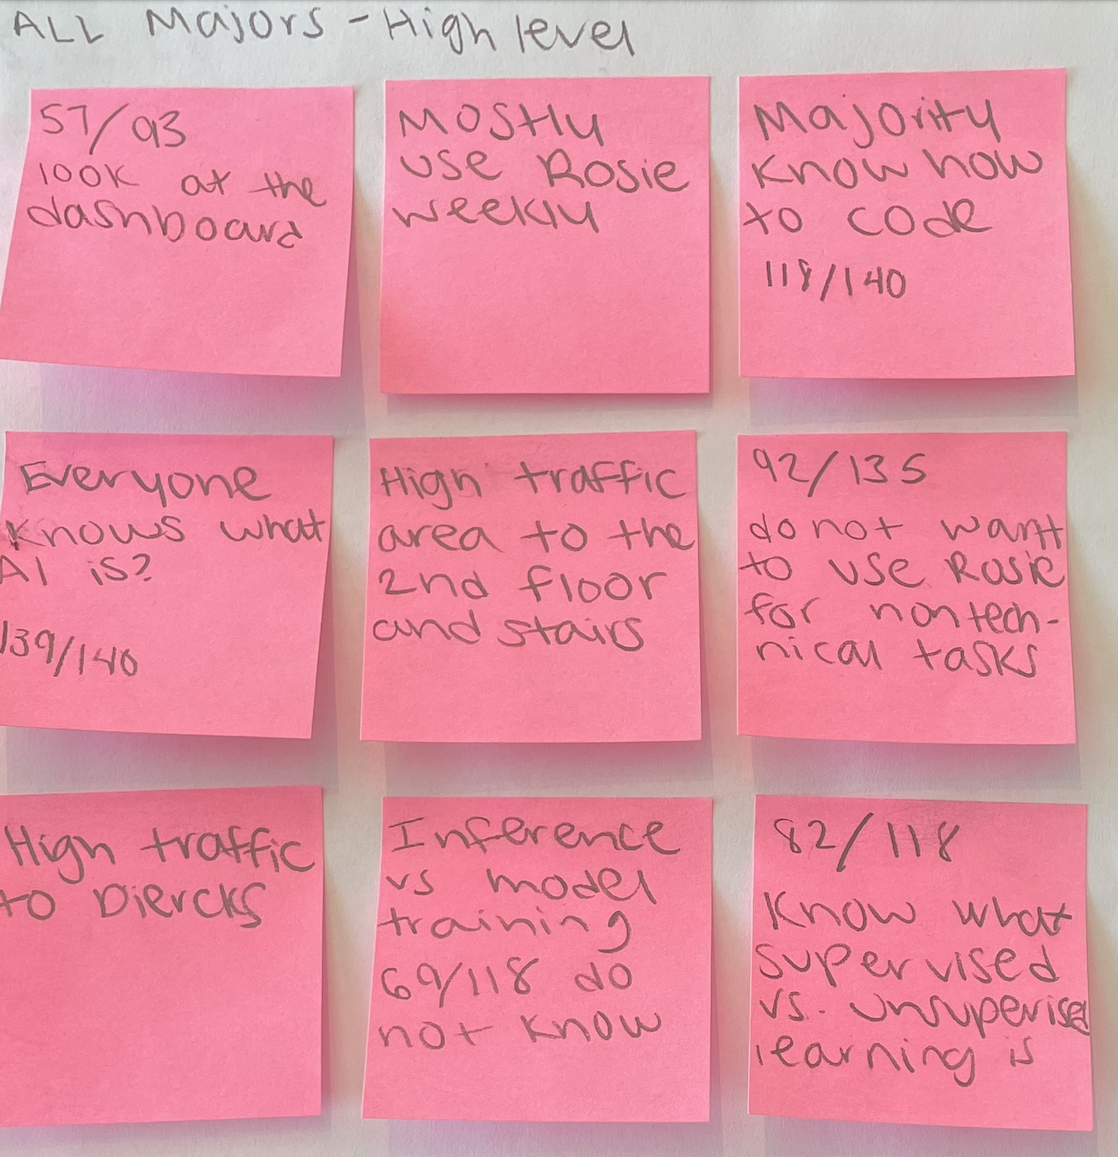 ALL Majors - High level
57/93
look at the
dashboard
Mostly
use Rosie
weekly
Majority
know how
to code
118/140
Everyone
knows what
AI is?
139/140
High traffic
area to the
2nd floor
and stairs
92/135
do not want
to use Rosie
for nontech-
nical tasks
High traffic
to Diercks
Inference
vs model
training
69/118 do
not know
82/118
Know what
supervised
vs. unsuperised
learning is